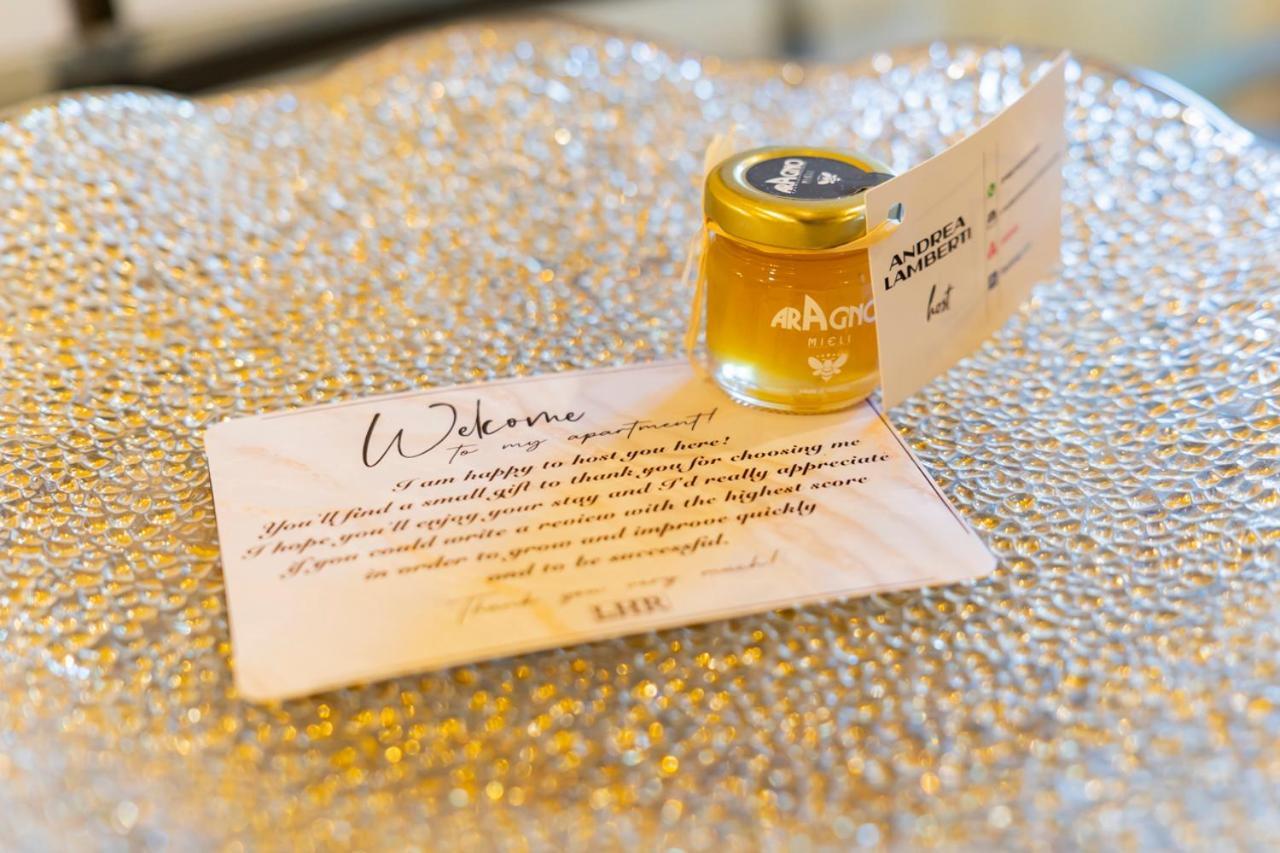 ARAGNO
MIELI
ARAGNO
MIELI
ANDREA
LAMBERTI
host
Welcome
to my apartment!
I am happy to host you here!
You'll find a small gift to thank you for choosing me
I hope you'll enjoy your stay and I'd really appreciate
if you could write a review with the highest score
in order to grow and improve quickly
and to be successful.
Thank you very much!
LHR